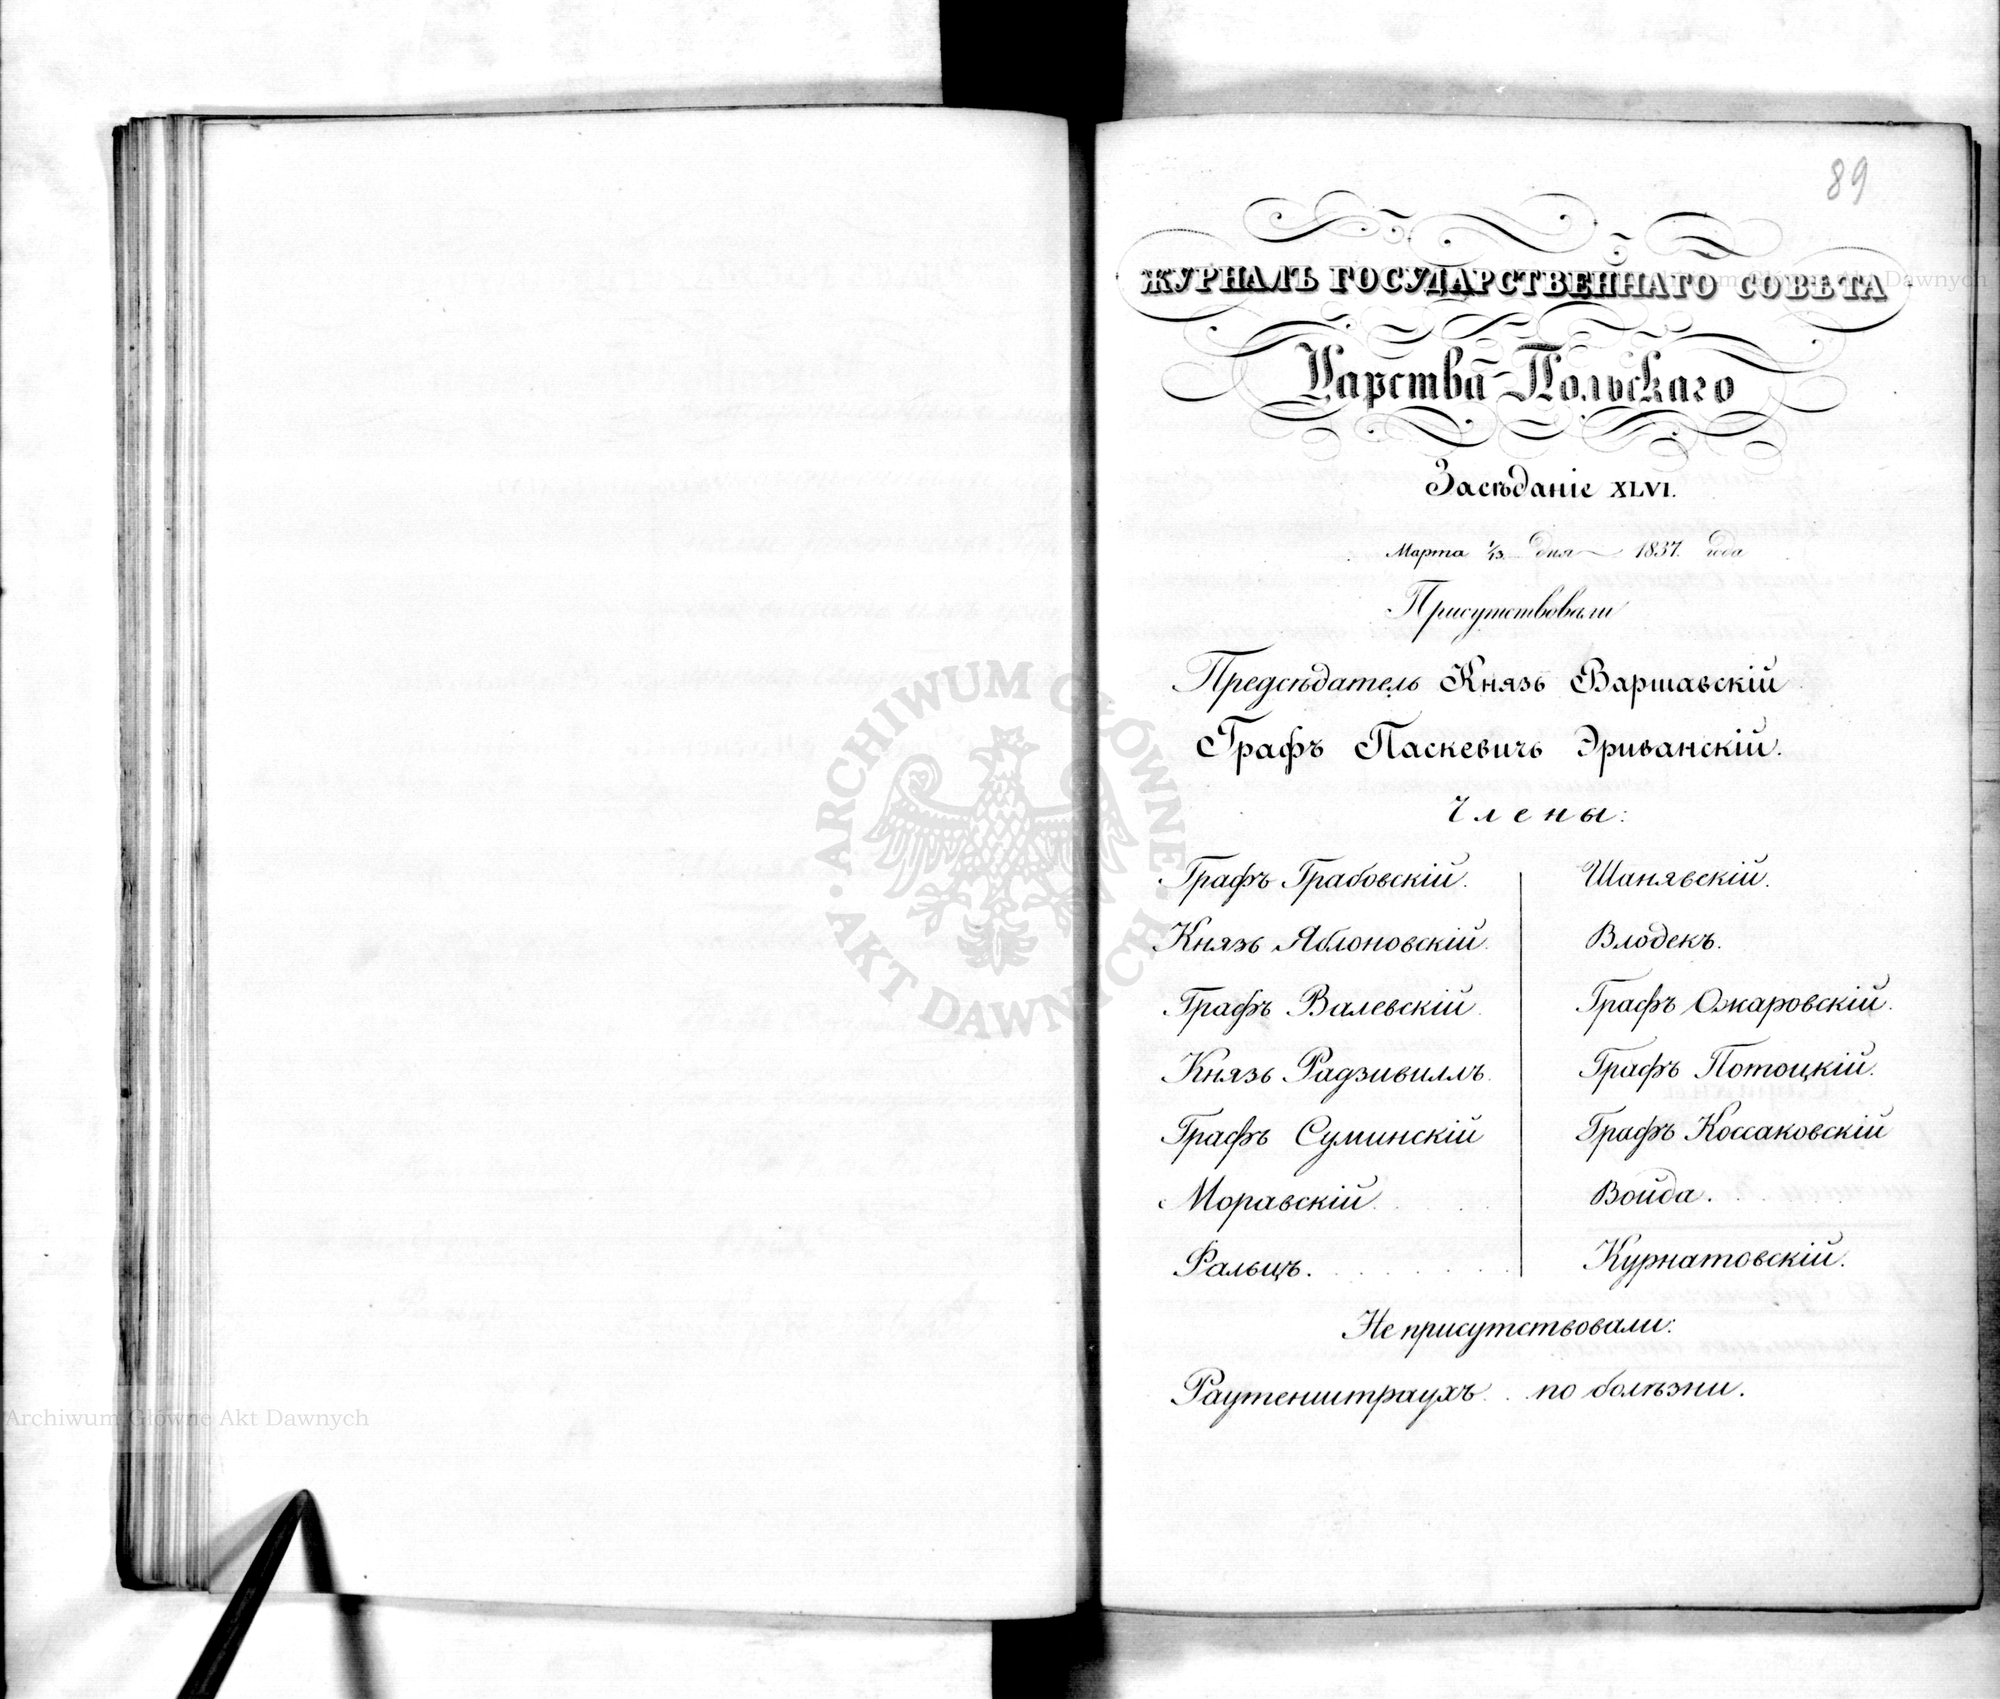 89
ЖУРНАЛЪ ГОСУДАРСТВЕННАГО СОВѢТА
Царства Польскаго
Засѣданіе XLVI.
Марта 1/13 дня 1837. года
Присутствовали
Предсѣдатель Князь Варшавскій
Графъ Паскевичъ Эриванскій.
Члены:
Графъ Грабовскій.
Князь Яблоновскій.
Графъ Валевскій.
Князь Радзивиллъ.
Графъ Суминскій
Моравскій
Фальцъ.
Шанявскій.
Влодекъ.
Графъ Ожаровскій.
Графъ Потоцкій.
Графъ Коссаковскій
Войда.
Курнатовскій.
Не присутствовали:
Раутенштраухъ по болѣзни.
ARCHIWUM GŁÓWNE AKT DAWNYCH
Archiwum Główne Akt Dawnych
Archiwum Główne Akt Dawnych